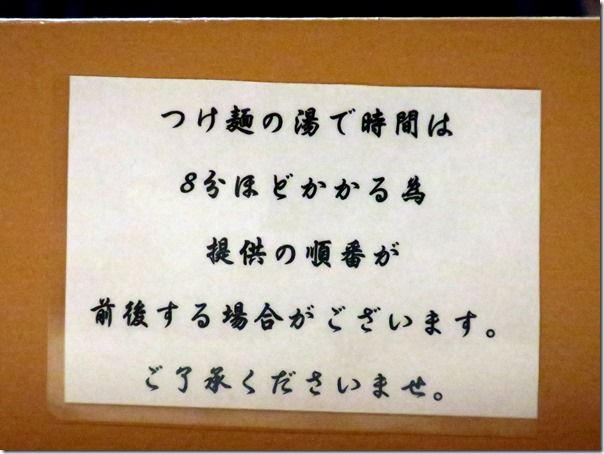 つけ麺の湯で時間は
8分ほどかかる為
提供の順番が
前後する場合がございます。
ご了承くださいませ。